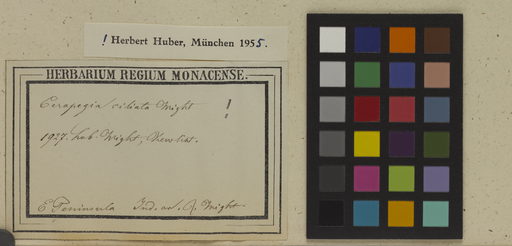 ! Herbert Huber, München 1955.
HERBARIUM REGIUM MONACENSE.
Ceropegia ciliata Wight !
1927. herb. Wight,
E Peninsula Ind. or. Wight.